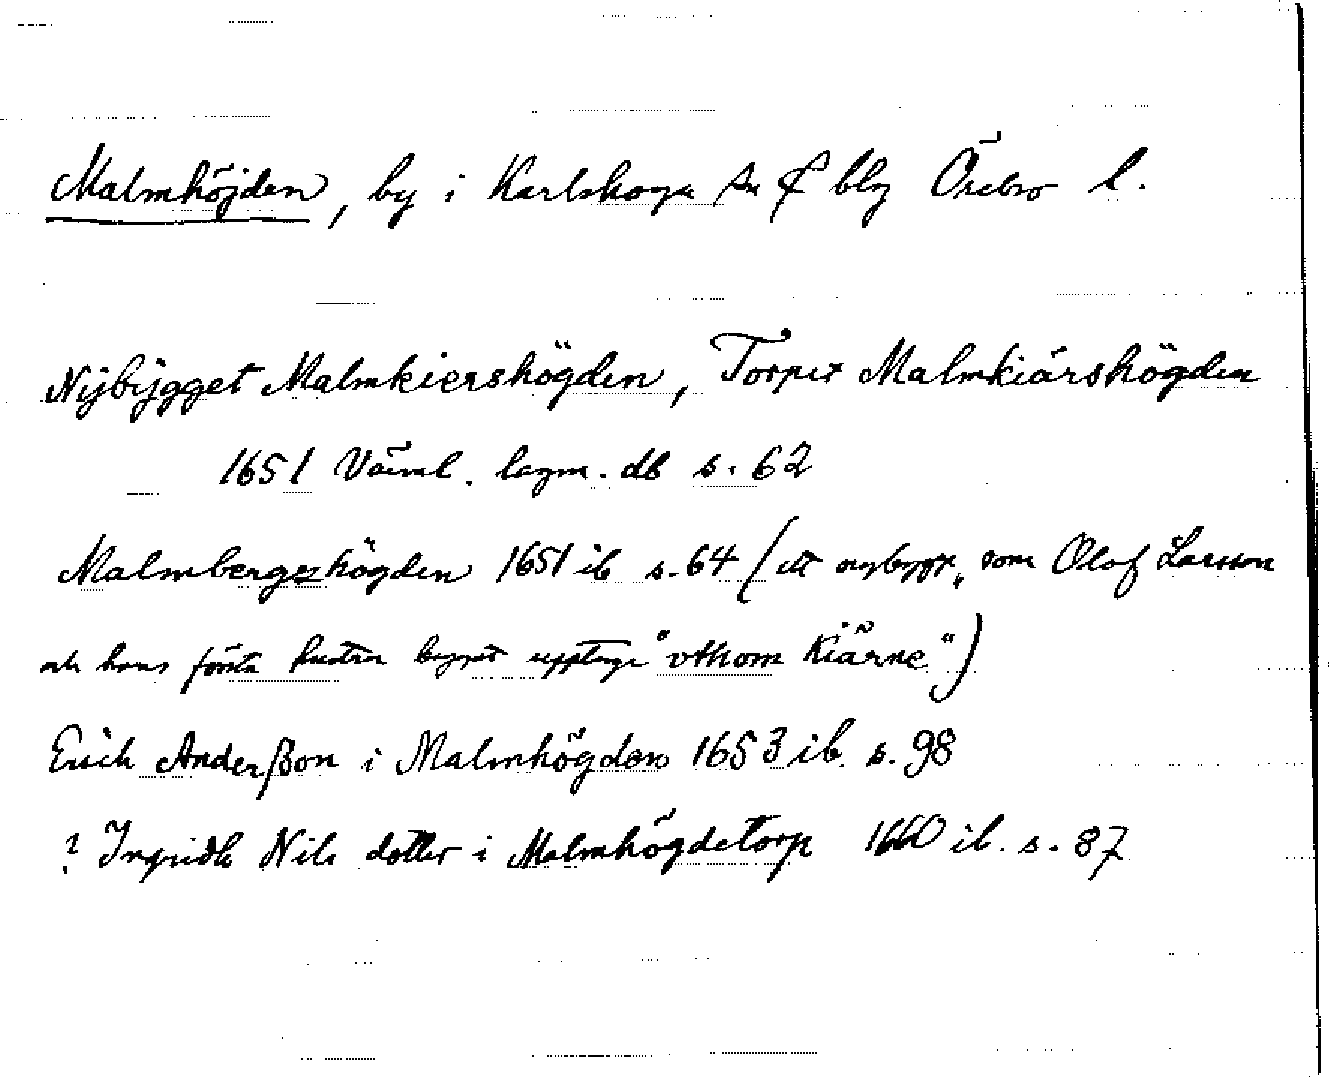 Malmhöjden, by i Karlskoga sn & blg Örebro l.
Nÿbÿgget Malmkiershögden, Torpet Malmkiärshögden
1651 Värml. lagm. db s. 62
Malmbergshögden 1651 ib s. 64 (ett nybygge, som Olof Larsson
och hans första hustru bygget upptage "vthom Kiärne")
Erich Anderßon i Malmhögden 1653 ib. s. 98
? Ingridh Nils dotter i Malmhögdetorp 1660 ib. s. 87